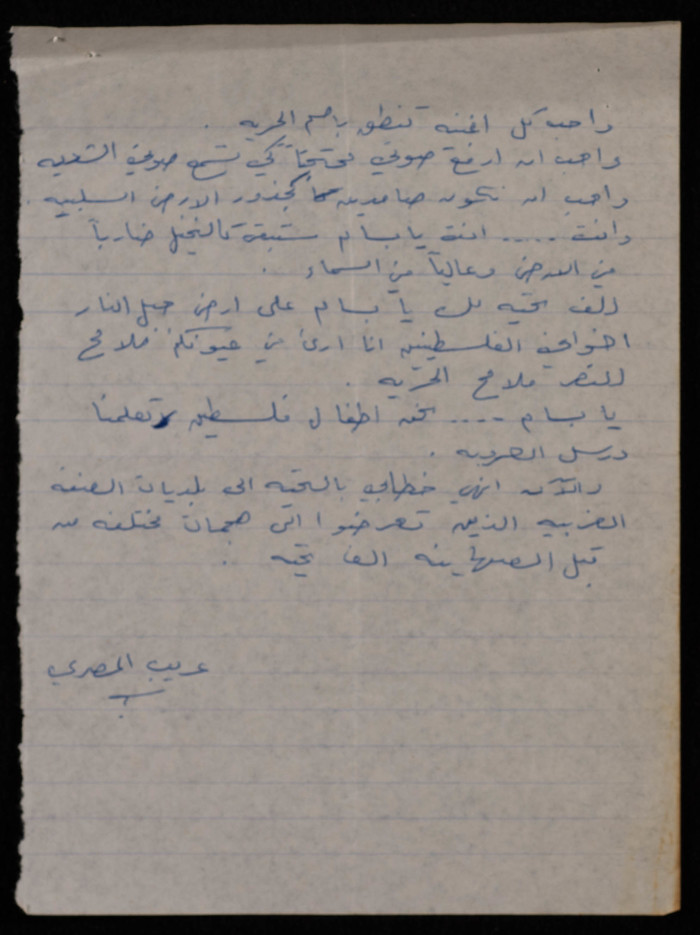 واحب كل اغنيه تنطق باسم الحريه .
واحب ان ارفع صوتي محتجاً كي تسمع صوتي الشعبيه
واحب ان نكون صامدين كجذور الارض السليبيه .
وانت ..... انت يا بسام ستبقى كالنخيل ضارباً
في الارض وعالياً في السماء .
الف تحيه لك يا بسام على ارض جبل النار
اخواني الفلسطينين انا ارى في عيونكم ملامح
للنصر ملامح الحريه .
يا بسام .... نحن اطفال فلسطين تعلمنا
درسل العروبه .
والآن انهي خطابي بالتحيه الى بلديات الضفه
الغربيه الذين تعرضوا الى هجمات مختلفه من
قبل الصهاينه الف تحيه .
عريب المصري